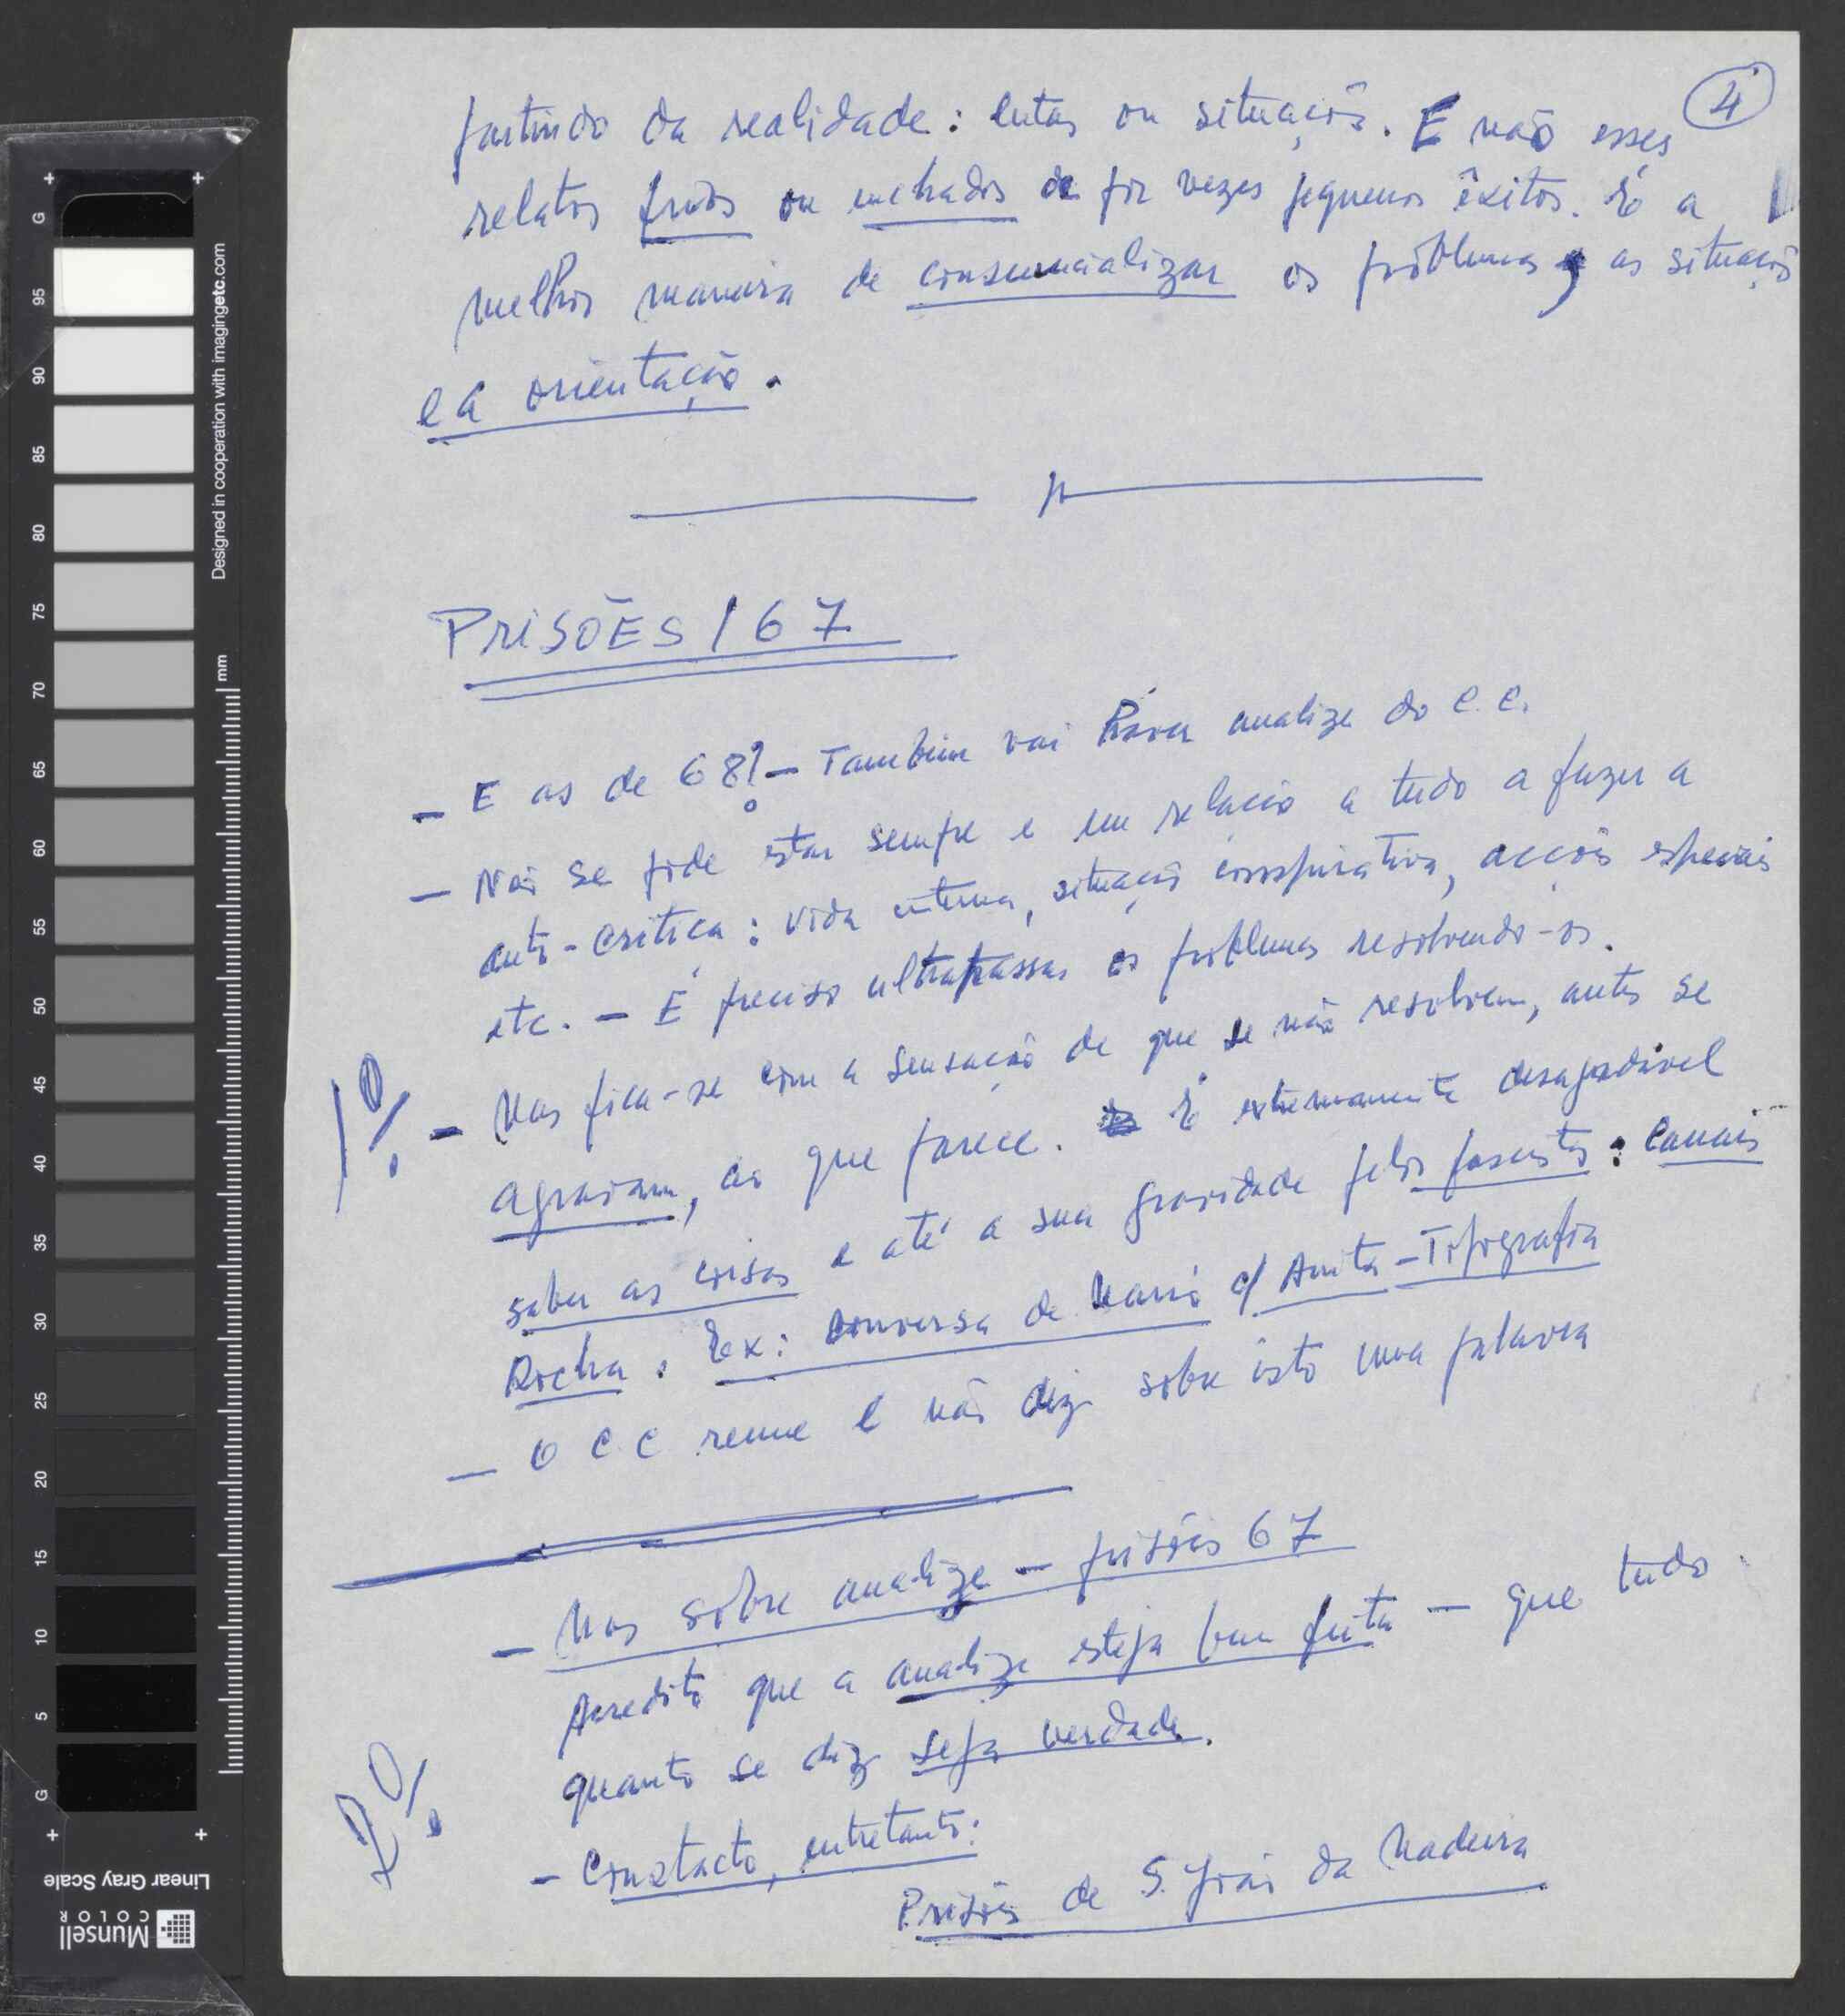 4
partindo da realidade: lutas ou situações. E não esses
relatos frios ou inchados de por vezes pequenos êxitos. É a
melhor maneira de consciencializar os problemas, as situações
e a orientação.
PRISÕES / 67
- E as de 68? - Também vai haver analize do C.C.
- Não se pode estar sempre e em relação a tudo a fazer a
auto-crítica: vida interna, situação conspirativa, acções especiais
etc. - É preciso ultrapassar os problemas resolvendo-os.
1º. - Mas fica-se com a sensação de que se não resolvem, antes se
agravam, ao que parece. É extremamente desagradável
saber as coisas e até a sua gravidade pelos fascistas: Canais
Rocha. Ex: conversa de Mário c/ Anita - Tipografia
- O C C reune e não diz sobre isto uma palavra
- Mas sobre analize - prisões 67
Acredito que a analize esteja bem feita - que tudo
quanto se diz seja verdade.
2º.
- Constacto, entretanto:
Prisões de S. João da Madeira
G 95 90 85 80 75 70 65 60 55 50 45 40 35 30 25 20 15 10 5 G
Designed in cooperation with imagingetc.com
mm
Linear Gray Scale
Munsell
COLOR